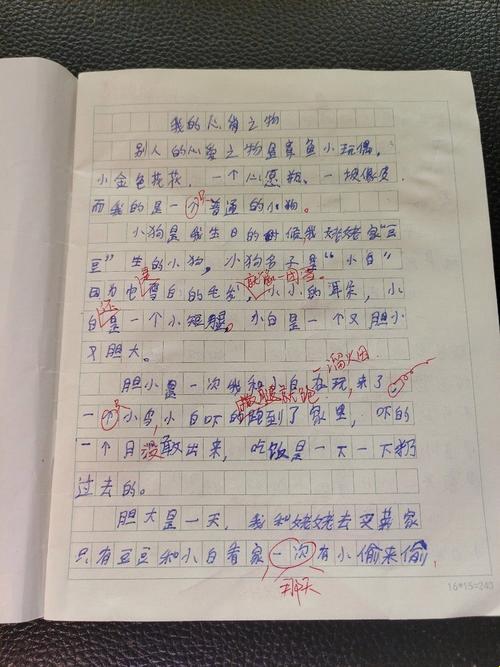 我的心爱之物
别人的心爱之物是章鱼小玩偶,
小金色花花,一个心愿瓶、一
而我的是一个普通的小狗。
只
小狗是我生日的时候,我姥姥家“豆
豆”生的小狗,小狗名子是“小白”
是
就像一团雪。
因为它雪白的毛发,小小的耳朵,小
还
白是一个小短腿。小白是一个又胆小
又胆大。
一溜火团
胆小是一次我和小白在玩,来了
撒腿就跑
一个小鸟,小白吓的跑到了家里,吓的
只
一个月没敢出来,吃饭是一下一下扔
过去的。
胆大是一天,我和姥姥去买菜家
只有豆豆和小白看家,一次有小偷来偷,
那天
16*15=240